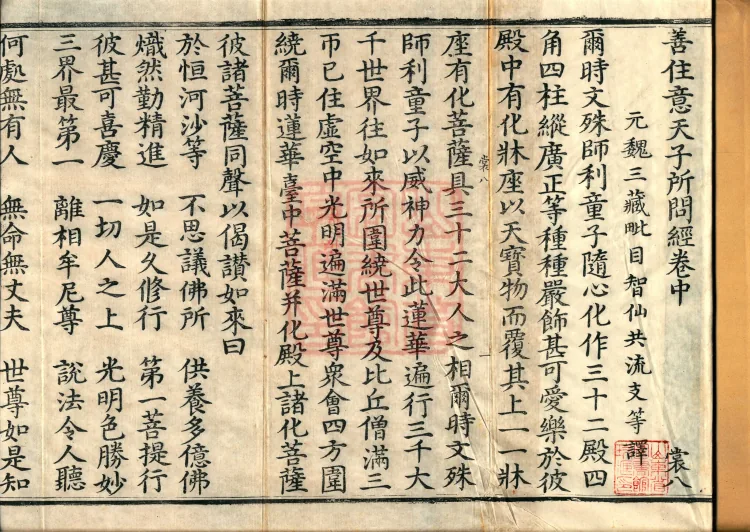 善住意天子所問經卷中 裳八
元魏三藏毗目智仙共流支等譯
爾時文殊師利童子隨心化作三十二殿四
角四柱縱廣正等種種嚴飾甚可愛樂於彼
殿中有化牀座以天寶物而覆其上一一牀
座有化菩薩具三十二大人之相爾時文殊
裳八
師利童子以威神力令此蓮華遍行三千大
千世界往如來所圍繞世尊及比丘僧滿三
帀已住虛空中光明遍滿世尊衆會四方圍
繞爾時蓮華臺中菩薩并化殿上諸化菩薩
彼諸菩薩同聲以偈讃如來曰
於恒河沙等 不思議佛所 供養多億佛
熾然勤精進 如是久修行 第一菩提行
彼甚可喜慶 一切人之上 光明色勝妙
三界最第一 離相牟尼尊 說法令人聽
何處無有人 無命無丈夫 世尊如是知